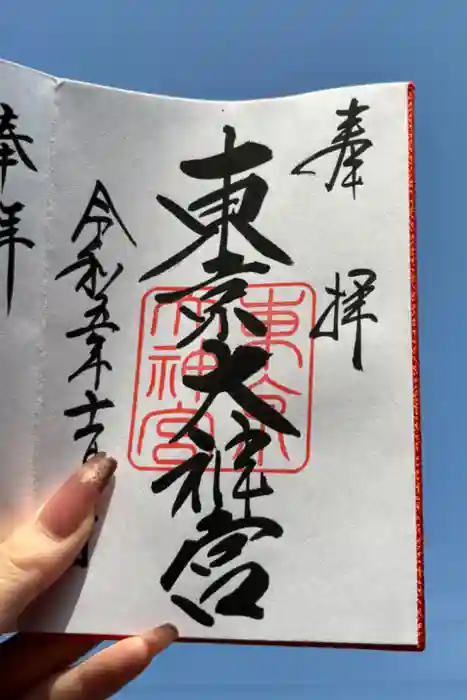 奉拝
東京大神宮
東京
大神宮
令和五年十二月
奉拝